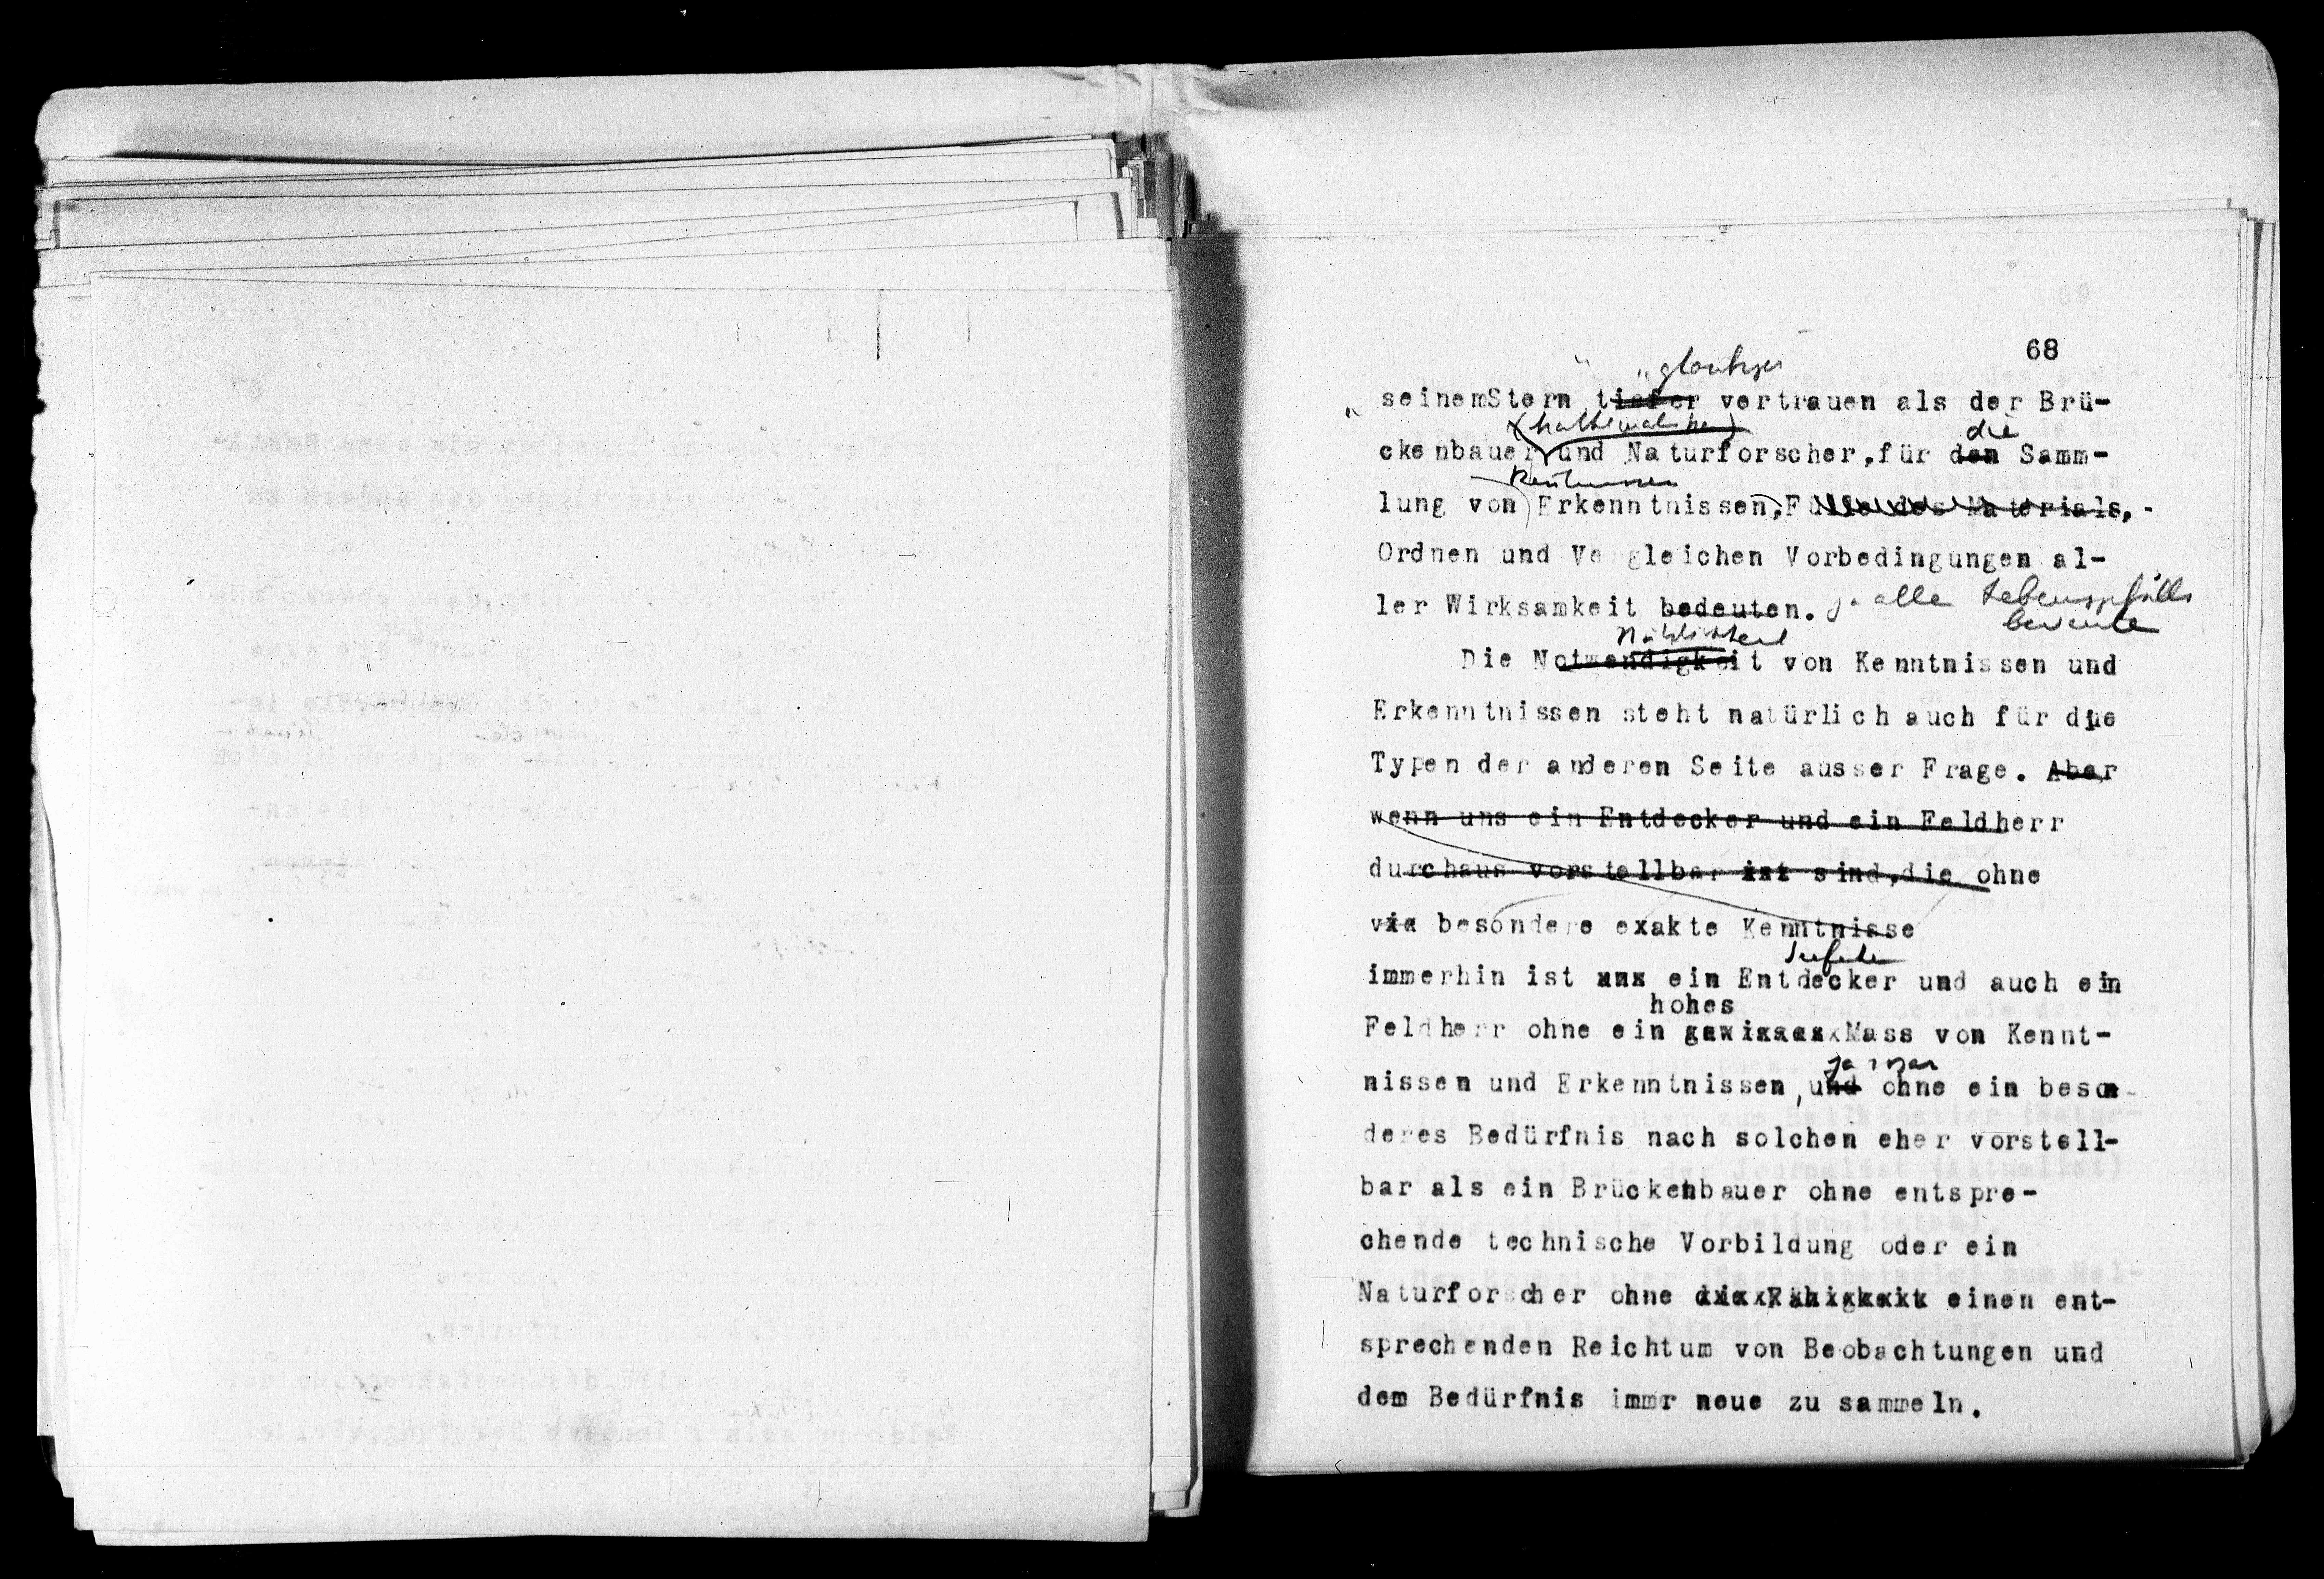 68
gläubiger
„seinem Stern" tiefer vertrauen als der Brü-
(Mathematiker) die
ckenbauer und Naturforscher, für den Samm-
Kenntnissen
lung von Erkenntnissen, Fülle des Materials, -
Ordnen und Vergleichen Vorbedingungen al-
ler Wirksamkeit bedeuten. alle Lebensfülle
bedeute
Nützlichkeit
Die Notwendigkeit von Kenntnissen und
Erkenntnissen steht natürlich auch für die
Typen der anderen Seite ausser Frage. Aber
wenn uns ein Entdecker und ein Feldherr
durchaus vorstellbar ist sind, die ohne
wie besondere exakte Kenntnisse
immerhin ist uns ein Entdecker und auch ein
hohes
Feldherr ohne ein gewisses Mass von Kennt-
ja gar
nissen und Erkenntnissen, und ohne ein beson-
deres Bedürfnis nach solchen eher vorstell-
bar als ein Brückenbauer ohne entspre-
chende technische Vorbildung oder ein
Naturforscher ohne die Fähigkeit einen ent-
sprechenden Reichtum von Beobachtungen und
dem Bedürfnis immr neue zu sammeln.